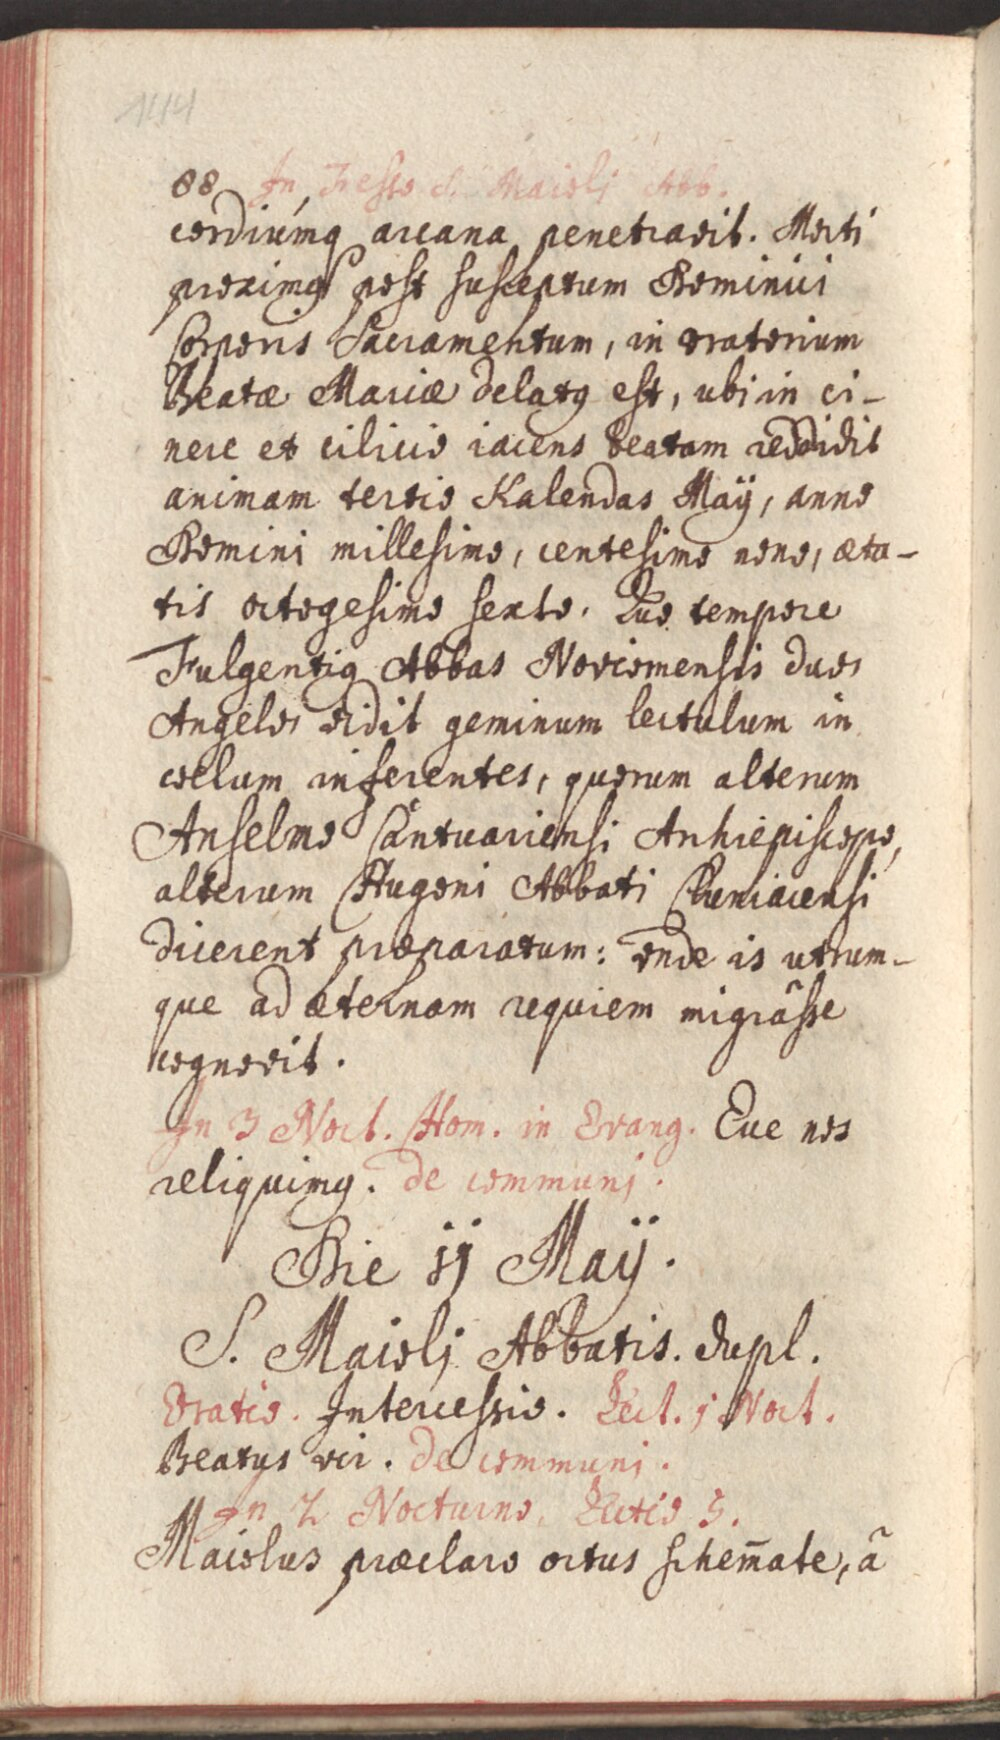 144
88 In Festo S. Maioli Abb.
cordiúmq arcana penetravit. Morti
proximꝰ post susceptum Dominici
Corporis Sacramentum, in oratorium
Beatæ Mariæ delatꝰ est, ubi in ci-
nere et cilicio iacens beatam reddidit
animam tertio Kalendas Maÿ, anno
Domini millesimo, centesimo nono, æta-
tis octogesimo sexto. Quo tempore
Fulgentiꝰ Abbas Noviomensis duos
Angelos vidit geminum lectulum in
coelum inferentes, quorum alterum
Anselmo Cantuariensi Archiepiscopo,
alterum Hugoni Abbati Cluniacensi
dicerent præparatum: unde is utrum-
que ad æternam requiem migrâsse
cognovit.
In 3 Noct. Hom. in Evang. Ecce nos
reliquimꝰ. de communi.
Die 11 Maÿ.
S. Maioli Abbatis. dupl.
Oratio. Intercessio. Lect. 1 Noct.
Beatus vir. de communi.
In 2 Nocturno, Lectio 5.
Maiolus præclaro ortus schem̄ate, â